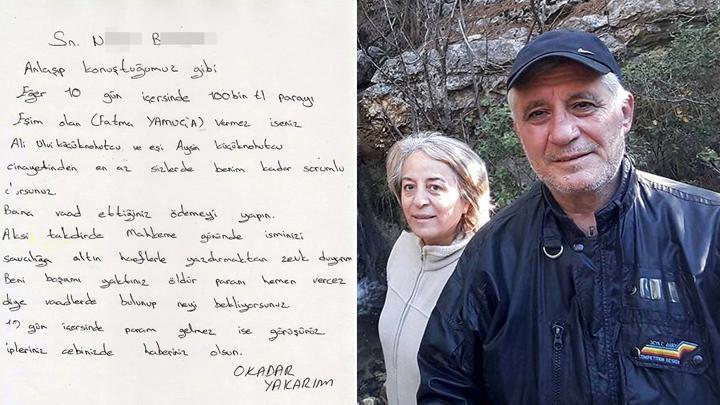 Sn. N B
Anlaşıp konuştuğumuz gibi
Eğer 10 gün içersinde 100bin tl parayı
Eşim olan (Fatma YAMUÇ'A) vermez iseniz
Ali Ulvi küçüknohutcu ve eşi Aysin küçüknohutcu
cinayetinden en az sizlerde benim kadar sorumlu
olursunuz.
Bana vaad ettiğiniz ödemeyi yapın.
Aksi takdirde Mahkeme gününde isminizi
savcılığa altın harflerle yazdırmaktan zevk duyarım
Beni başamı yaktınız öldür paranı hemen vercez
diye vaadlerde bulunup neyi bekliyorsunuz
10 gün içersinde param gelmez ise görüşürüz
ipleriniz cebinizde haberiniz olsun.
OKADAR
YAKARIM
COMPETITION DESIGN